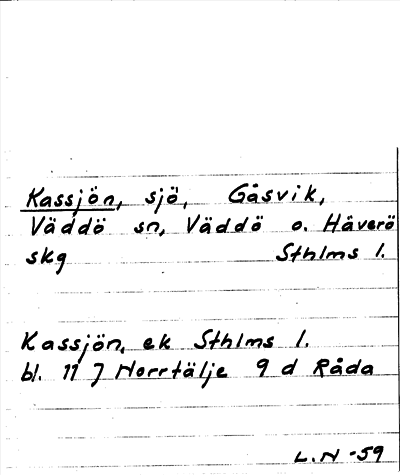 Kassjön, sjö, Gåsvik,
Väddö sn, Väddö o. Håverö
skg Sthlms l.
Kassjön, ek Sthlms l.
bl. 11 J Norrtälje 9 d Råda
L.N -59